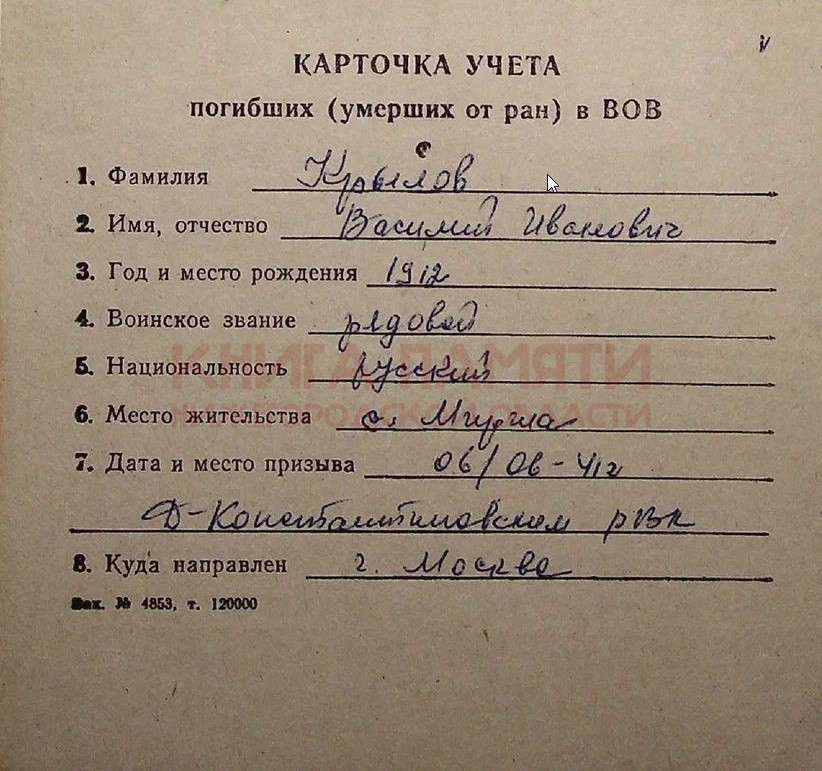 v
КАРТОЧКА УЧЕТА
погибших (умерших от ран) в ВОВ
1. Фамилия Крылов
2. Имя, отчество Василий Иванович
3. Год и место рождения 1912
4. Воинское звание рядовой
5. Национальность русский
КНИГА ПАМЯТИ
НИЖЕГОРОДСКОЙ ОБЛАСТИ
6. Место жительства с.
7. Дата и место призыва 06/06-41г
Д-Константиновским рвк
8. Куда направлен г. Москва
Зак. № 4853, т. 120000